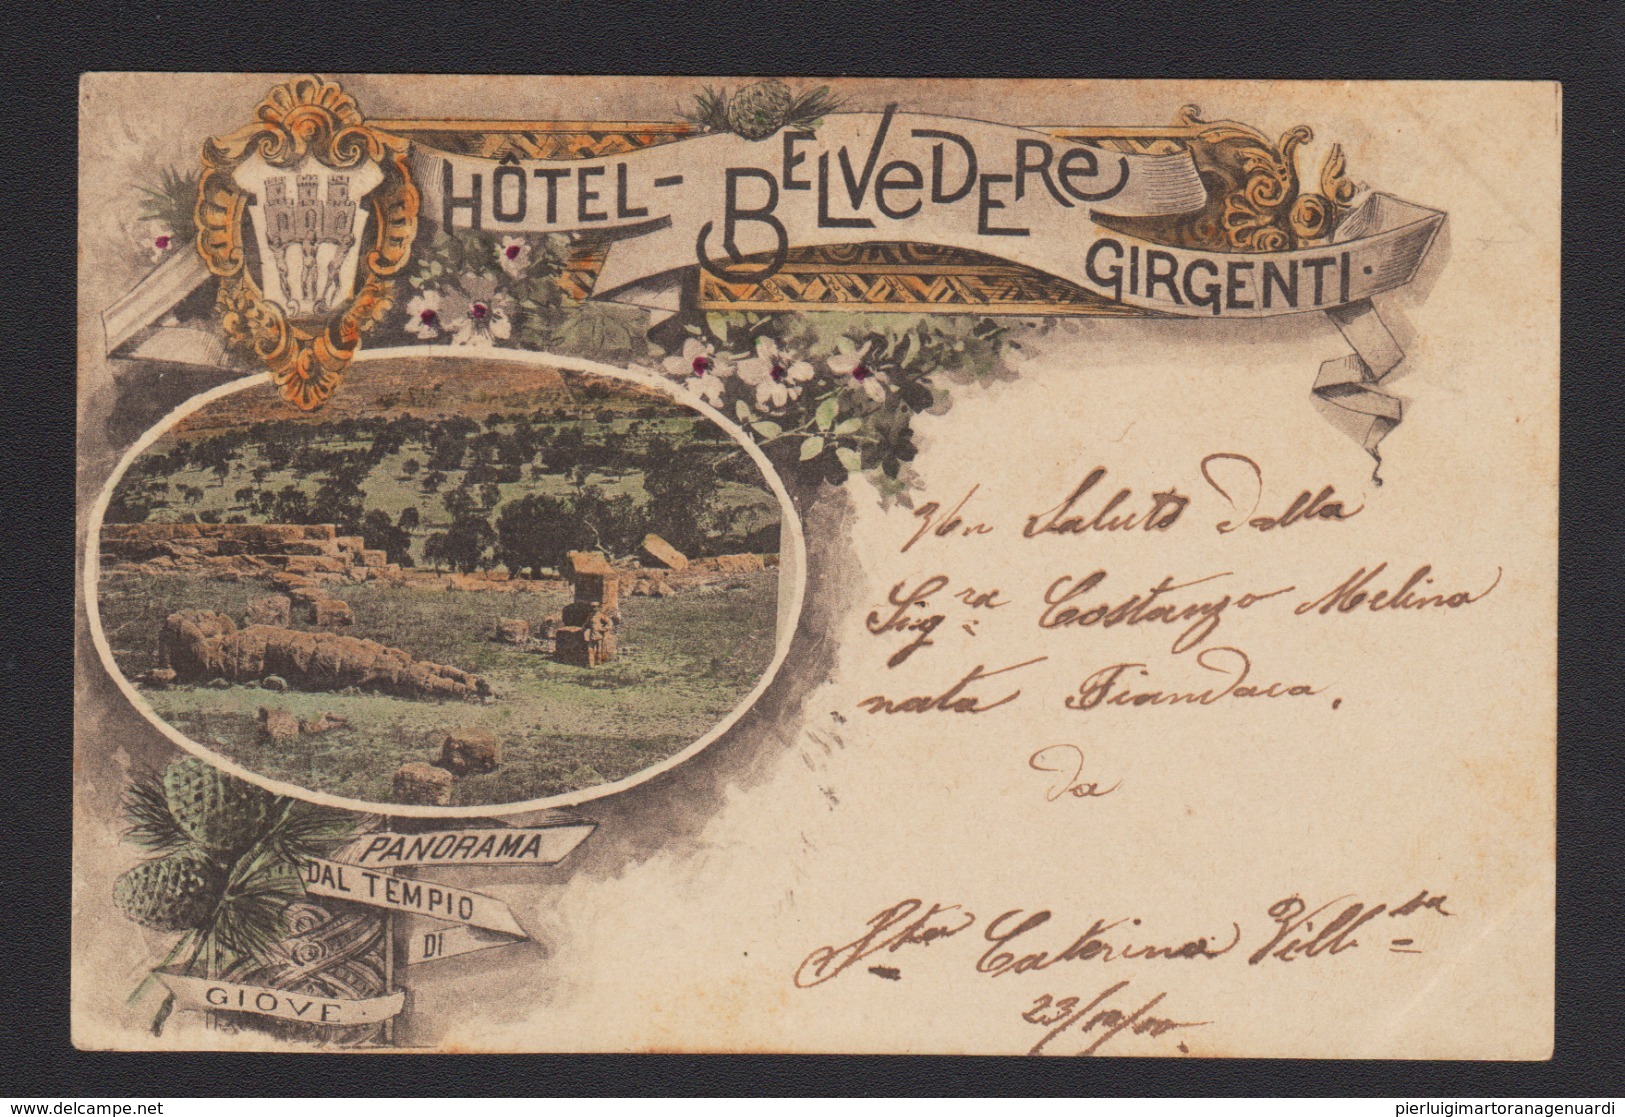 HÔTEL-BELVEDERE
GIRGENTI.
Un Saluto dalla
Sig.ra Costanzo Melina
nata Fiandaca.
da
PANORAMA
DAL TEMPIO
DI
GIOVE.
Sta Caterina Vill.
23/10/00
delcampe.net
pierluigimartoranagenuardi